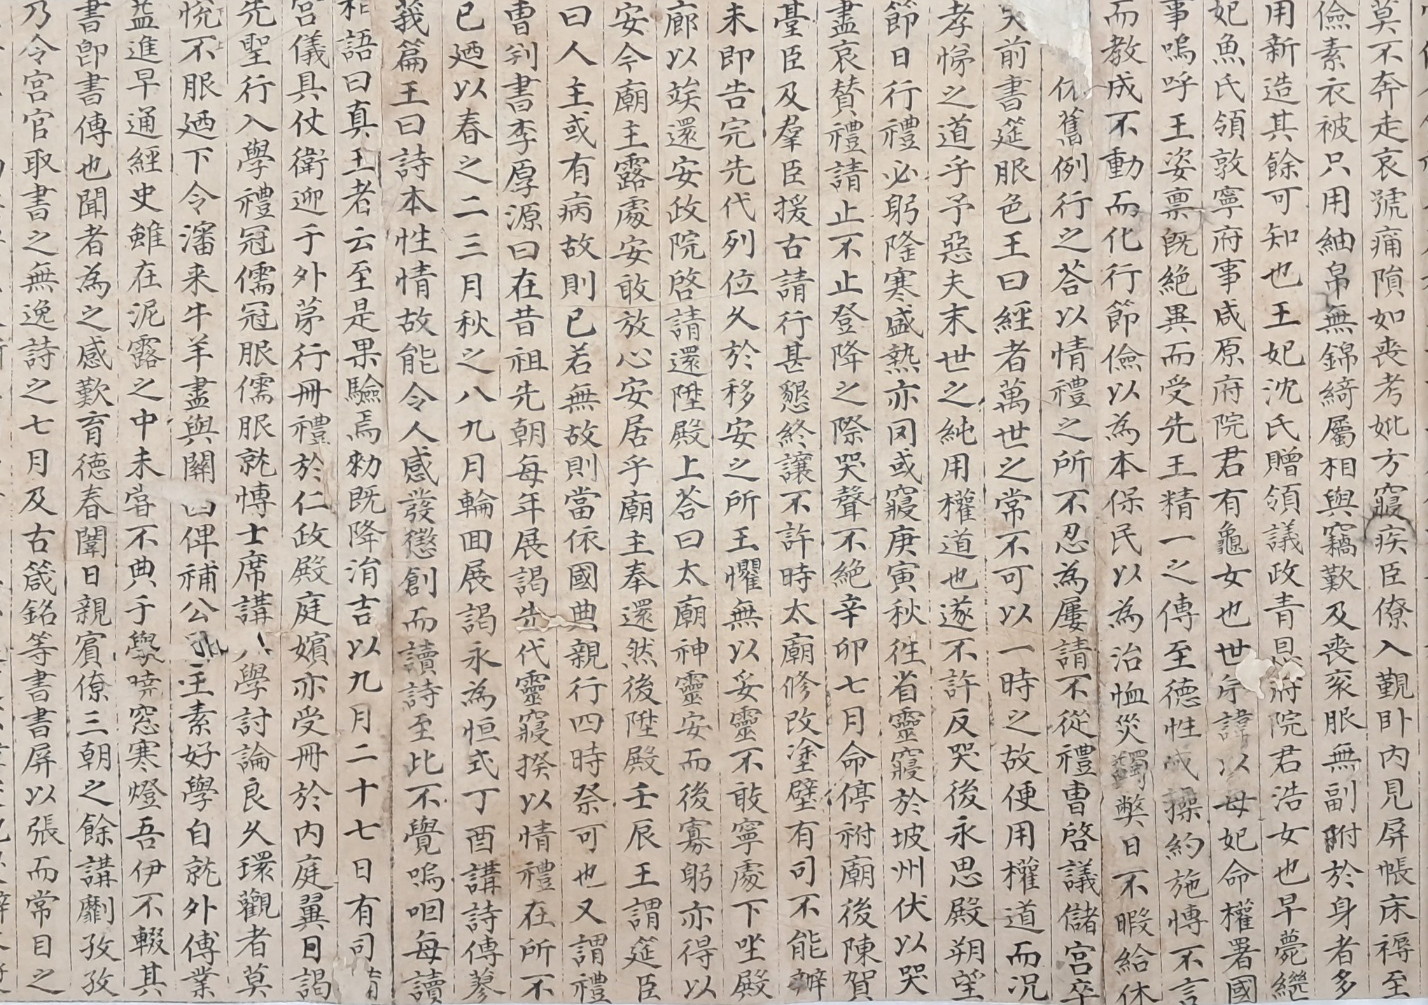 莫不奔走哀號痛隕如喪考妣方寢疾臣僚入觀臥內見屏帳床褥至
儉素衣被只用紬帛無錦綺屬相與竊歎及喪衮服無副附於身者多
用新造其餘可知也王妃沈氏贈領議政青恩府院君浩女也早薨繼
妃魚氏領敦寧府事咸原府院君有龜女也世宗諱以母妃命權署國
事嗚呼王姿稟旣絶異而受先王精一之傳至德性成操約施博不言
而教成不動而化行節儉以為本保民以為治恤災蠲弊日不暇給休
依舊例行之答以情禮之所不忍為屢請不從禮曹啓議儲宮卒
哭前書筵服色王曰經者萬世之常不可以一時之故便用權道而況
孝悌之道乎予惡夫末世之純用權道也遂不許反哭後永思殿朔望
節日行禮必躬隆寒盛熱亦罔或寢庚寅秋往省靈寢於坡州伏以哭
盡哀贊禮請止不止登降之際哭聲不絶辛卯七月命停祔廟後陳賀
臺臣及羣臣援古請行甚懇終讓不許時太廟修改塗壁有司不能辦
未即告完先代列位久於移安之所王懼無以妥靈不敢寧處下坐殿
廊以竢還安政院啓請還陞殿上答曰太廟神靈安而後寡躬亦得以
安今廟主露處安敢放心安居乎廟主奉還然後陞殿壬辰王謂筵臣
曰人主或有病故則已若無故則當依國典親行四時祭可也又謂禮
曹判書李厚源曰在昔祖先朝每年展謁先代靈寢揆以情禮在所不
已廼以春之二三月秋之八九月輪回展謁永為恒式丁酉講詩傳蓼
莪篇王曰詩本性情故能令人感發懲創而讀詩至此不覺嗚咽每讀
相語曰真王者云至是果驗焉勑旣降涓吉以九月二十七日有司
宮儀具仗衛迎于外茅行冊禮於仁政殿庭嬪亦受冊於內庭翼日謁
先聖行入學禮冠儒冠服儒服就博士席講 學討論良久環觀者莫
悅不服廼下令瀋来牛羊盡與闢 四俾補公 主素好學自就外傅業
益進早通經史雖在泥露之中未嘗不典于學曉窓寒燈吾伊不輟其
書卽書傅也聞者為之感歎育德春闈日親賓僚三朝之餘講劘孜孜
乃令宮官取書之無逸詩之七月及古箴銘等書書屏以張而常目之